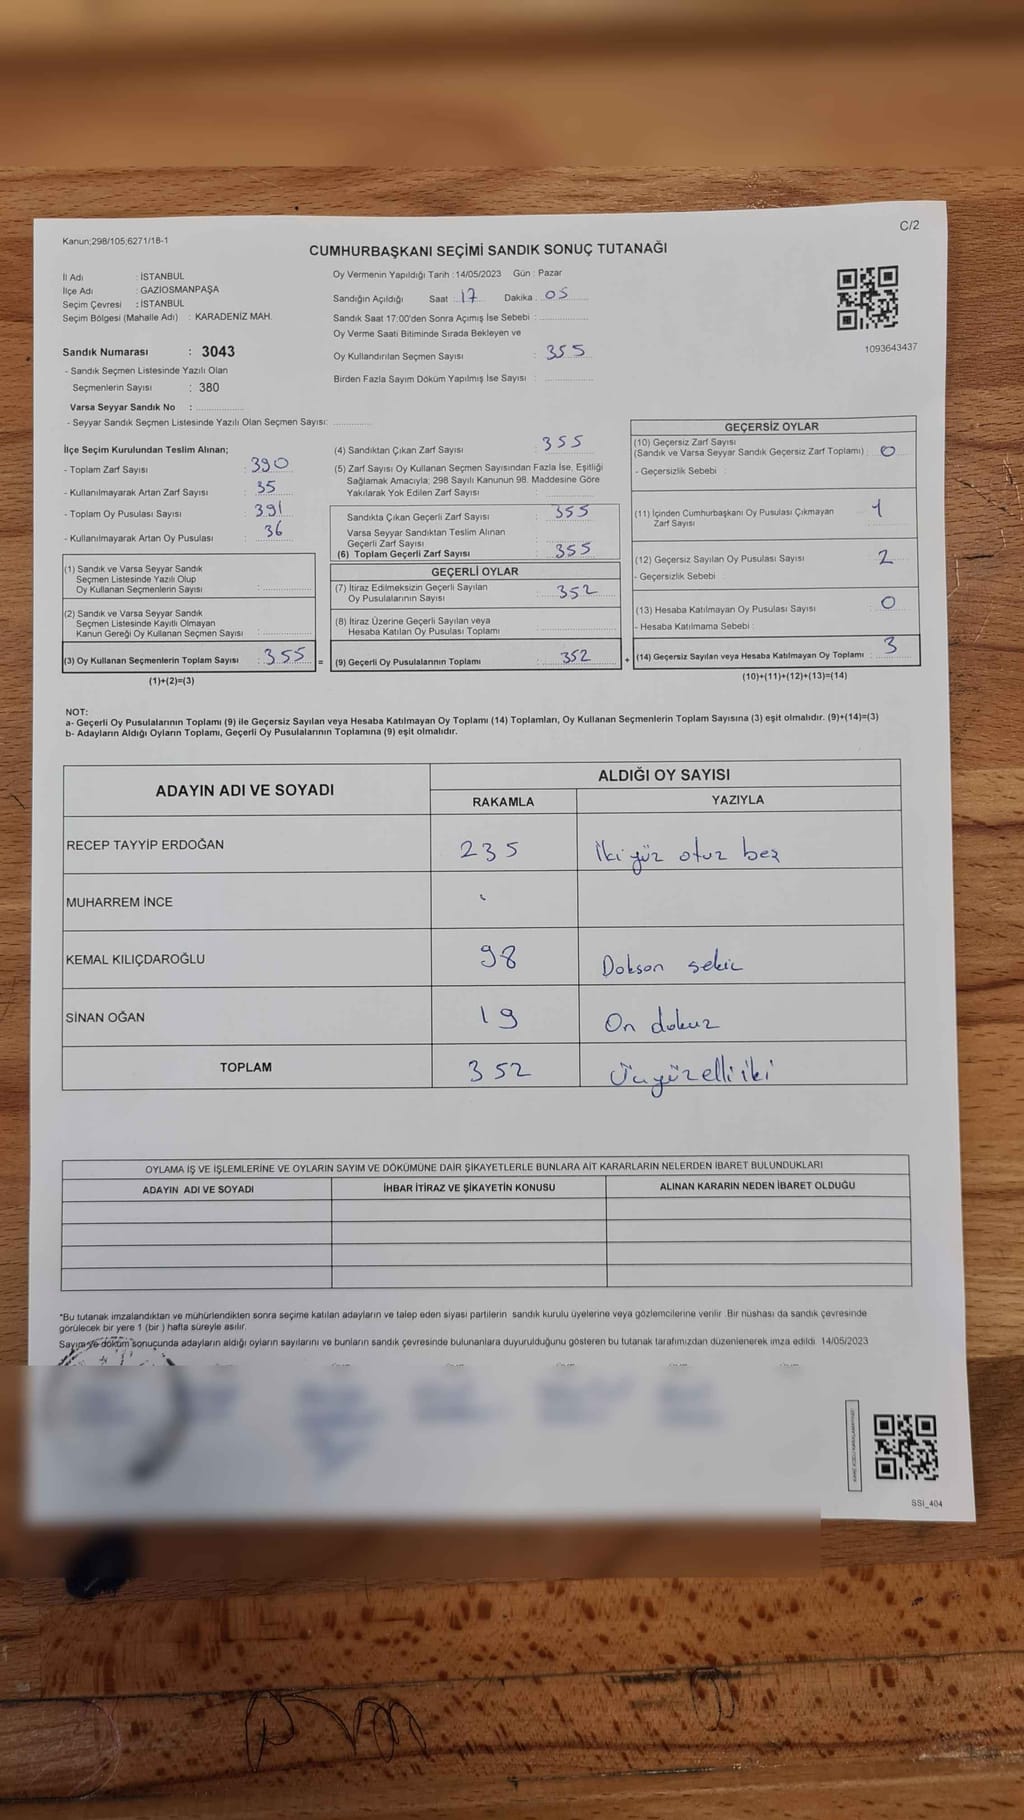 C/2
Kanun;298/105;6271/18-1
CUMHURBAŞKANI SEÇİMİ SANDIK SONUÇ TUTANAĞI
İl Adı : İSTANBUL
İlçe Adı : GAZİOSMANPAŞA
Seçim Çevresi : İSTANBUL
Seçim Bölgesi (Mahalle Adı) : KARADENİZ MAH.
Sandık Numarası : 3043
- Sandık Seçmen Listesinde Yazılı Olan
Seçmenlerin Sayısı : 380
Varsa Seyyar Sandık No :
- Seyyar Sandık Seçmen Listesinde Yazılı Olan Seçmen Sayısı:
Oy Vermenin Yapıldığı Tarih :14/05/2023 Gün : Pazar
Sandığın Açıldığı Saat : 17 Dakika : 05
Sandık Saat 17:00'den Sonra Açımış İse Sebebi :
Oy Verme Saati Bitiminde Sırada Bekleyen ve
Oy Kullandırılan Seçmen Sayısı : 355
Birden Fazla Sayım Döküm Yapılmış İse Sayısı :
1093643437
İlçe Seçim Kurulundan Teslim Alınan;
- Toplam Zarf Sayısı : 390
- Kullanılmayarak Artan Zarf Sayısı : 35
- Toplam Oy Pusulası Sayısı : 391
- Kullanılmayarak Artan Oy Pusulası : 36
(1) Sandık ve Varsa Seyyar Sandık
Seçmen Listesinde Yazılı Olup
Oy Kullanan Seçmenlerin Sayısı :
(2) Sandık ve Varsa Seyyar Sandık
Seçmen Listesinde Kayıtlı Olmayan
Kanun Gereği Oy Kullanan Seçmen Sayısı :
(3) Oy Kullanan Seçmenlerin Toplam Sayısı : 355 =
(1)+(2)=(3)
(4) Sandıktan Çıkan Zarf Sayısı : 355
(5) Zarf Sayısı Oy Kullanan Seçmen Sayısından Fazla İse, Eşitliği
Sağlamak Amacıyla; 298 Sayılı Kanunun 98. Maddesine Göre
Yakılarak Yok Edilen Zarf Sayısı :
Sandıkta Çıkan Geçerli Zarf Sayısı : 355
Varsa Seyyar Sandıktan Teslim Alınan
Geçerli Zarf Sayısı :
(6) Toplam Geçerli Zarf Sayısı : 355
GEÇERLİ OYLAR
(7) İtiraz Edilmeksizin Geçerli Sayılan
Oy Pusulalarının Sayısı : 352
(8) İtiraz Üzerine Geçerli Sayılan veya
Hesaba Katılan Oy Pusulası Toplamı :
(9) Geçerli Oy Pusulalarının Toplamı : 352 +
GEÇERSİZ OYLAR
(10) Geçersiz Zarf Sayısı
(Sandık ve Varsa Seyyar Sandık Geçersiz Zarf Toplamı) : 0
- Geçersizlik Sebebi :
(11) İçinden Cumhurbaşkanı Oy Pusulası Çıkmayan
Zarf Sayısı : 1
(12) Geçersiz Sayılan Oy Pusulası Sayısı : 2
- Geçersizlik Sebebi :
(13) Hesaba Katılmayan Oy Pusulası Sayısı : 0
- Hesaba Katılmama Sebebi :
(14) Geçersiz Sayılan veya Hesaba Katılmayan Oy Toplamı : 3
(10)+(11)+(12)+(13)=(14)
NOT:
a- Geçerli Oy Pusulalarının Toplamı (9) ile Geçersiz Sayılan veya Hesaba Katılmayan Oy Toplamı (14) Toplamları, Oy Kullanan Seçmenlerin Toplam Sayısına (3) eşit olmalıdır. (9)+(14)=(3)
b- Adayların Aldığı Oyların Toplamı, Geçerli Oy Pusulalarının Toplamına (9) eşit olmalıdır.
ADAYIN ADI VE SOYADI ALDIĞI OY SAYISI
RAKAMLA YAZIYLA
RECEP TAYYİP ERDOĞAN 235 İki yüz otuz beş
MUHARREM İNCE
KEMAL KILIÇDAROĞLU 98 Doksan sekiz
SİNAN OĞAN 19 On dokuz
TOPLAM 352 Üçyüzelli iki
OYLAMA İŞ VE İŞLEMLERİNE VE OYLARIN SAYIM VE DÖKÜMÜNE DAİR ŞİKAYETLERLE BUNLARA AİT KARARLARIN NELERDEN İBARET BULUNDUKLARI
ADAYIN ADI VE SOYADI İHBAR İTİRAZ VE ŞİKAYETİN KONUSU ALINAN KARARIN NEDEN İBARET OLDUĞU
*Bu tutanak imzalandıktan ve mühürlendikten sonra seçime katılan adayların ve talep eden siyasi partilerin sandık kurulu üyelerine veya gözlemcilerine verilir. Bir nüshası da sandık çevresinde
görülecek bir yere 1 (bir) hafta süreyle asılır.
Sayım ve döküm sonucunda adayların aldığı oyların sayılarını ve bunların sandık çevresinde bulunanlara duyurulduğunu gösteren bu tutanak tarafımızdan düzenlenerek imza edildi. 14/05/2023
SSI_404